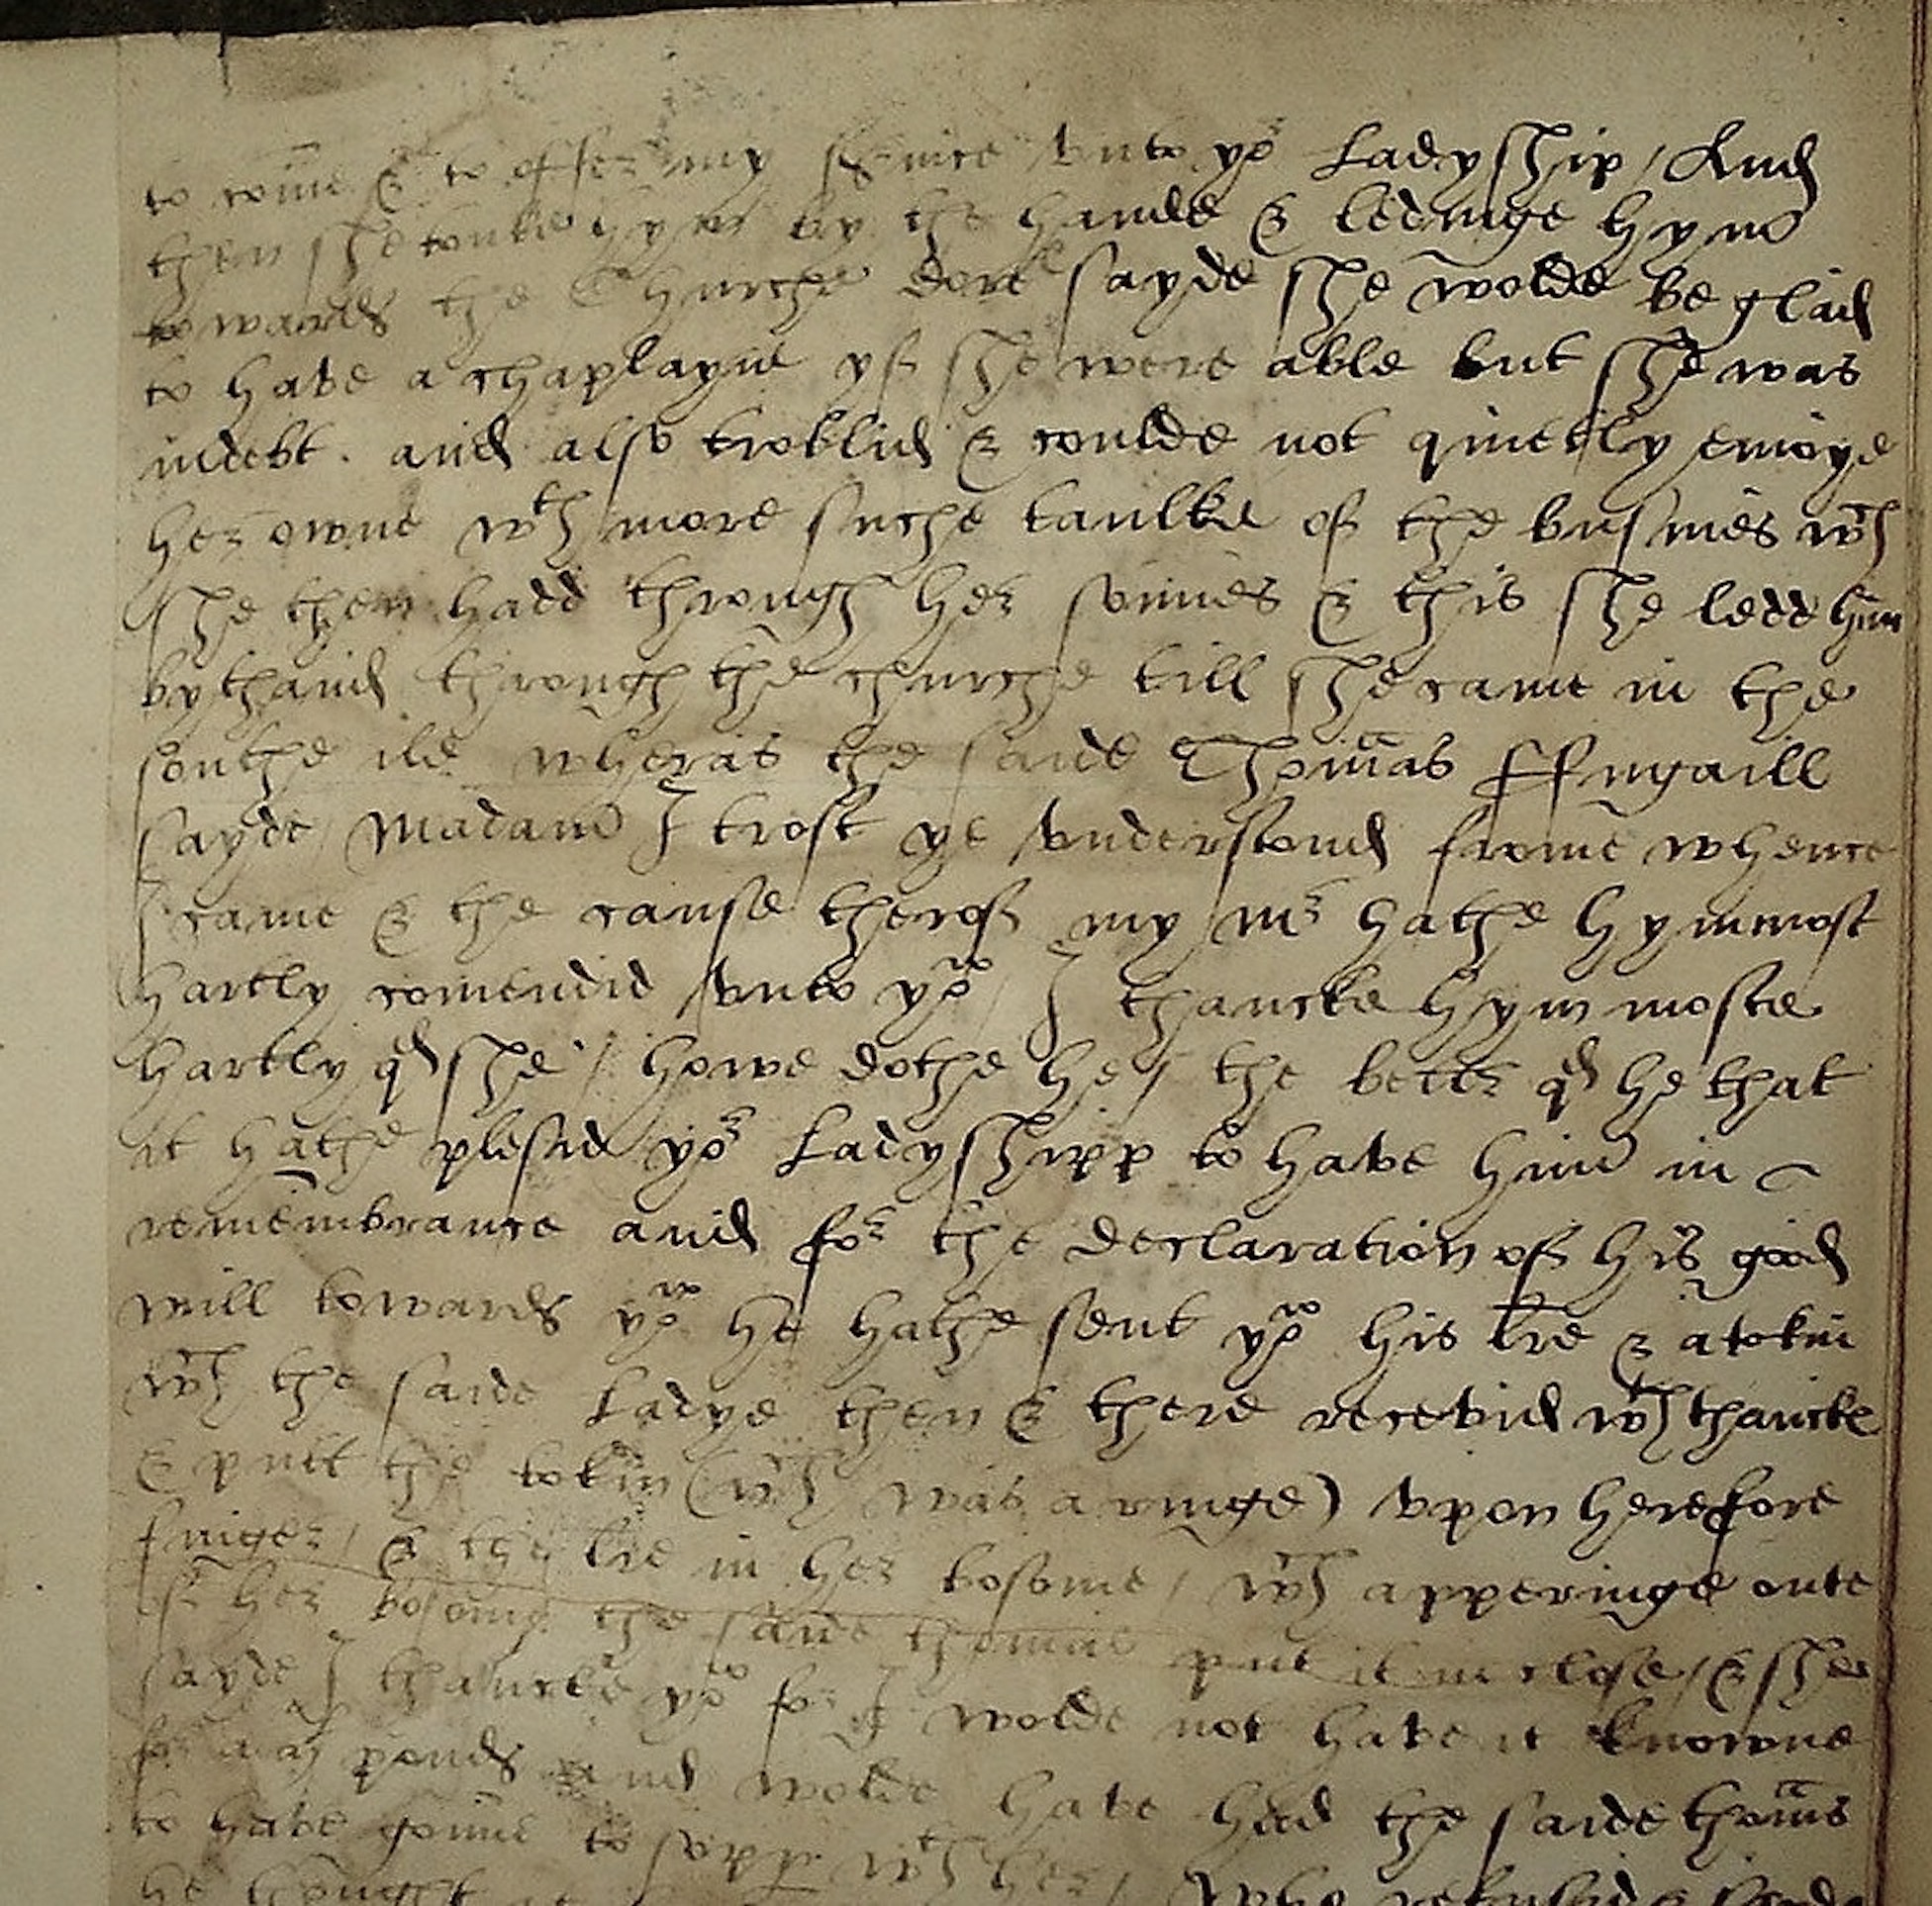 to come & to offer my service unto yor Ladyship / And
then she tooke hym by the hande & ledinge hym
towards the Churche dore sayde she wolde be glad
to have a chaplayne yf she were able but she was
indebt. and also troblid & coulde not quietly enioye
her owne wth more suche taulke of the busines wch
she then hadd through her sonnes & this she ledd him
by thand through the churche till she came in the
southe ile wheras the saide Thomas ffugaill
sayde / Madame I trost ye understond frome whence
I came & the cause therof my mr hathe hym most
hartly comendid unto yow / I thancke hym moste
hartly qd she / howe dothe he / the better qd he that
it hathe plesid yor Ladyshipp to have him in
remembrance and for the declaration of his good
will towards yow he hathe sent yow his lre & a tokin
wch the saide Ladye then & there recevid wth thancke
& putt the tokin (wch was a ringe) upon her fore
finger / & the lre in her bosome / wch apperinge oute
of her bosome the saide thomas put it in close / & she
sayde I thancke yow for I wolde not have it knowne
for a pounds and wolde have had the saide thomas
to have gonne to supp wth her / who refusid &
he thought it